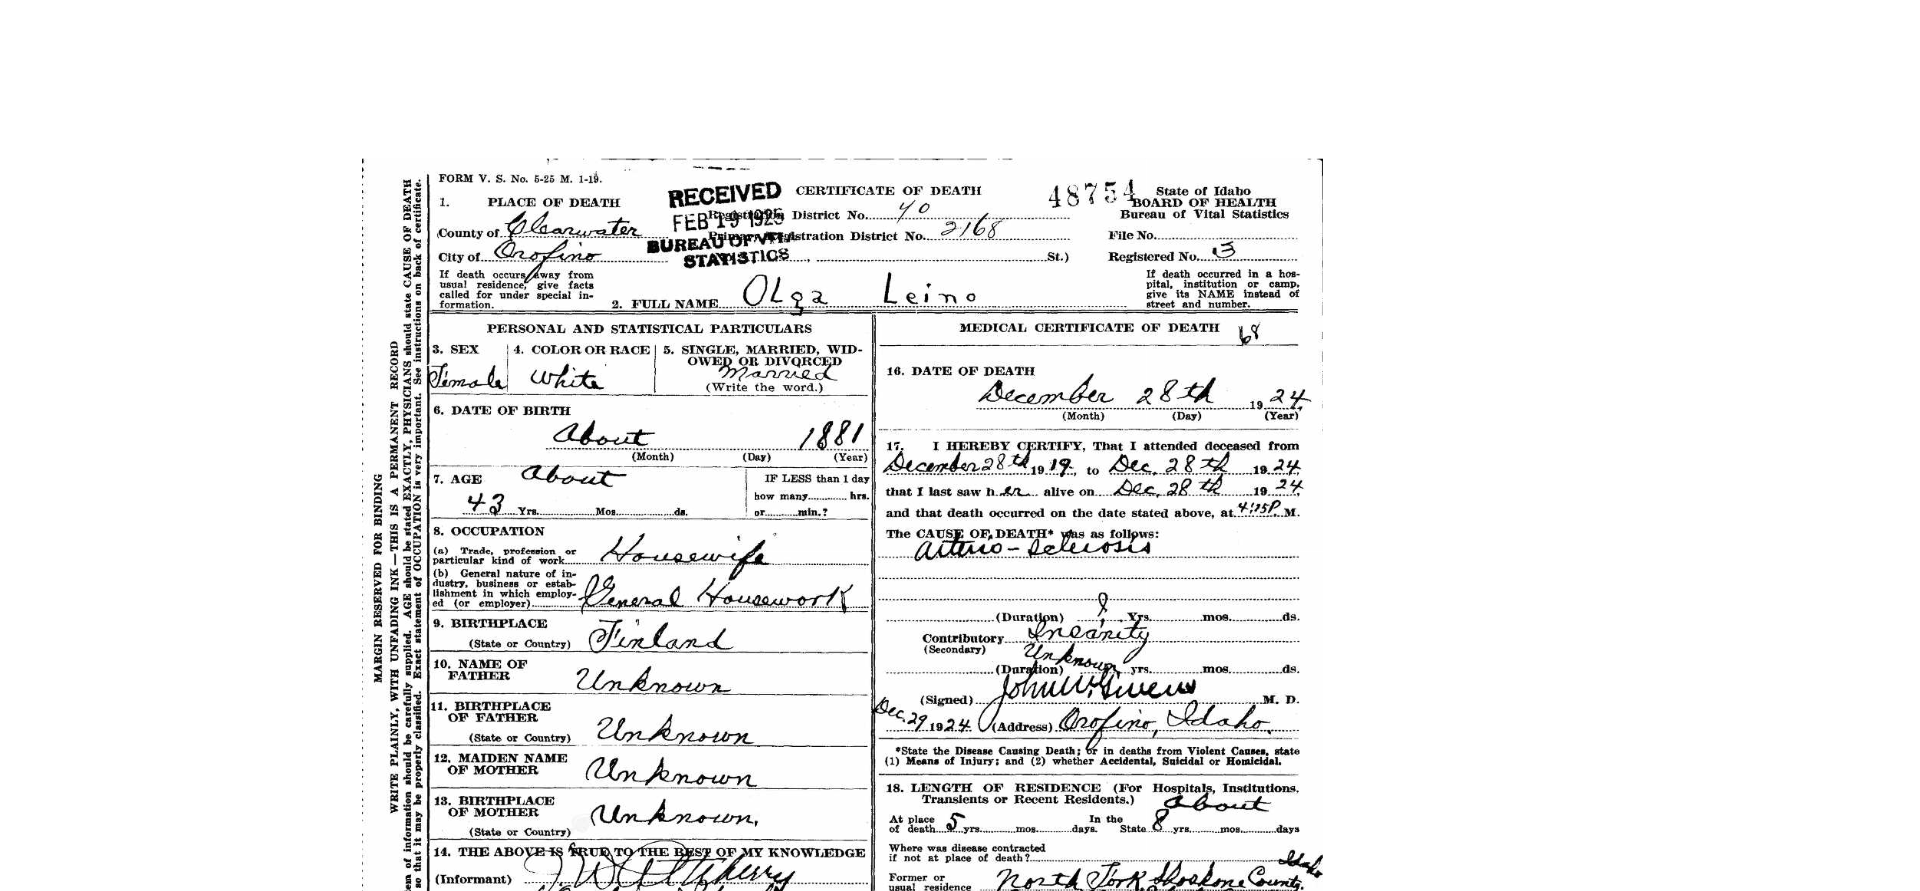 FORM V. S. No. 5-25 M. 1-19.
RECEIVED
FEB 19 1925
BUREAU OF VITAL
STATISTICS
CERTIFICATE OF DEATH
48754
State of Idaho
BOARD OF HEALTH
Bureau of Vital Statistics
1. PLACE OF DEATH
County of Clearwater
City of Orofino
Registration District No. 40
Primary Registration District No. 2168
St.)
File No.
Registered No. 3
If death occurs away from
usual residence, give facts
called for under special in-
formation.
2. FULL NAME Olga Leino
If death occurred in a hos-
pital, institution or camp,
give its NAME instead of
street and number.
MARGIN RESERVED FOR BINDING
WRITE PLAINLY, WITH UNFADING INK—THIS IS A PERMANENT RECORD
em of information should be carefully supplied. AGE should be stated EXACTLY, PHYSICIANS should state CAUSE OF DEATH
so that it may be properly classified. Exact statement of OCCUPATION is very important. See instructions on back of certificate.
PERSONAL AND STATISTICAL PARTICULARS
3. SEX
Female
4. COLOR OR RACE
White
5. SINGLE, MARRIED, WID-
OWED OR DIVORCED
Married
(Write the word.)
6. DATE OF BIRTH
About 1881
(Month) (Day) (Year)
7. AGE About
43 Yrs. Mos. ds.
IF LESS than 1 day
how many hrs.
or min.?
8. OCCUPATION
(a) Trade, profession or
particular kind of work Housewife
(b) General nature of in-
dustry, business or estab-
lishment in which employ-
ed (or employer) General Housework
9. BIRTHPLACE
(State or Country) Finland
10. NAME OF
FATHER Unknown
11. BIRTHPLACE
OF FATHER
(State or Country) Unknown
12. MAIDEN NAME
OF MOTHER Unknown
13. BIRTHPLACE
OF MOTHER
(State or Country) Unknown.
14. THE ABOVE IS TRUE TO THE BEST OF MY KNOWLEDGE
(Informant)
MEDICAL CERTIFICATE OF DEATH 68
16. DATE OF DEATH
December 28th 1924.
(Month) (Day) (Year)
17. I HEREBY CERTIFY, That I attended deceased from
December 28th 1919, to Dec. 28th 1924.
that I last saw her alive on Dec. 28th 1924.
and that death occurred on the date stated above, at 4:15P. M.
The CAUSE OF DEATH* was as follows:
Arterio-Sclerosis
(Duration) 8 Yrs. mos. ds.
Contributory Insanity
(Secondary)
(Duration) Unknown yrs. mos. ds.
(Signed) John W. Givens M. D.
Dec. 29 1924. (Address) Orofino, Idaho.
*State the Disease Causing Death; or in deaths from Violent Causes, state
(1) Means of Injury; and (2) whether Accidental, Suicidal or Homicidal.
18. LENGTH OF RESIDENCE (For Hospitals, Institutions,
Transients or Recent Residents.) About
At place
of death 5 yrs. mos. days.
In the
State 8 yrs. mos. days
Where was disease contracted
if not at place of death?
Former or
usual residence North Fork Shoshone County, Idaho